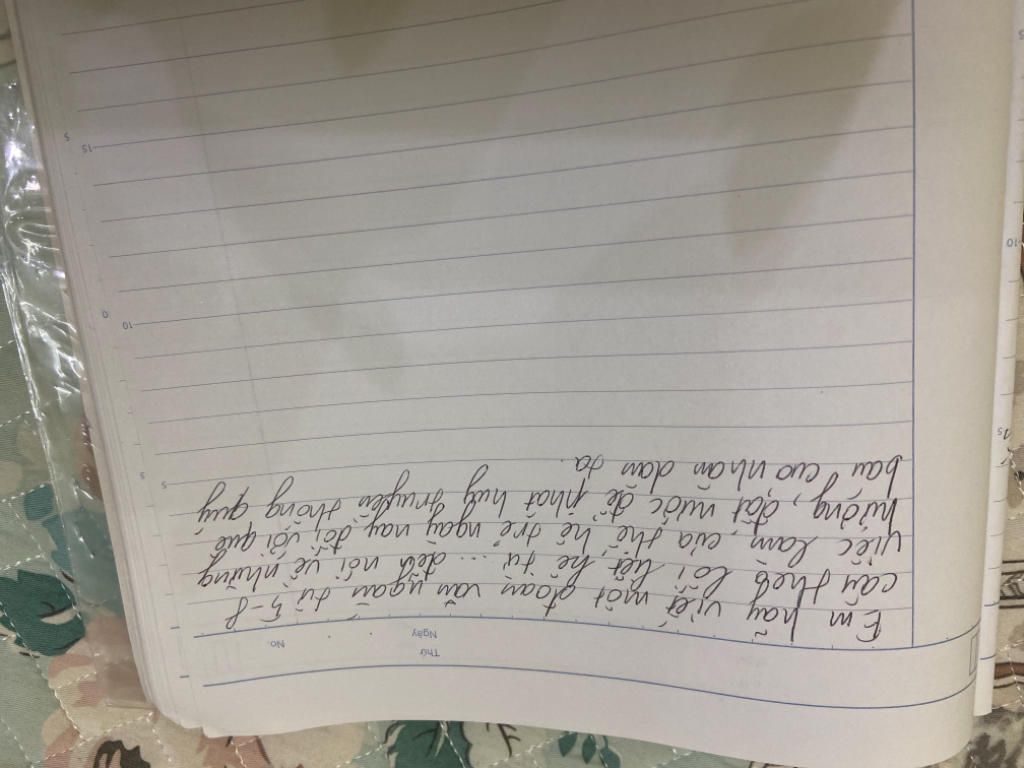 Thứ
Ngày
No.
Em hãy viết một đoạn văn ngắn từ 5-8
câu theo lối liệt kê từ ... đến nói về những
việc làm của thế hệ trẻ ngày nay đối với quê
hương, đất nước để phát huy truyền thống quý
báu của nhân dân ta.
5
10
15
5
0
5
10